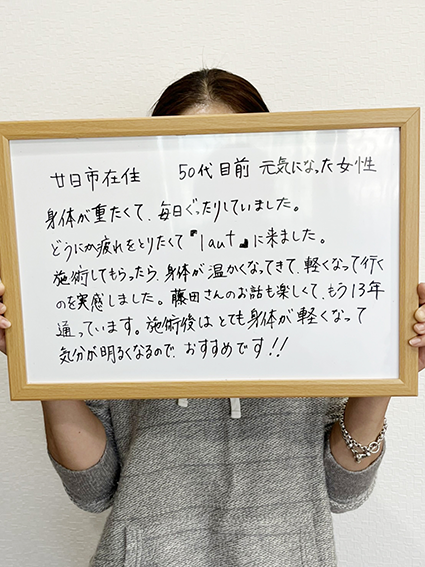 廿日市在住　50代目前 元気になった女性
身体が重たくて、毎日ぐったりしていました。
どうにか疲れをとりたくて『laut』に来ました。
施術してもらったら、身体が温かくなってきて、軽くなって行く
のを実感しました。藤田さんのお話も楽しくて、もう13年
通っています。施術後はとても身体が軽くなって
気分が明るくなるので、おすすめです!!